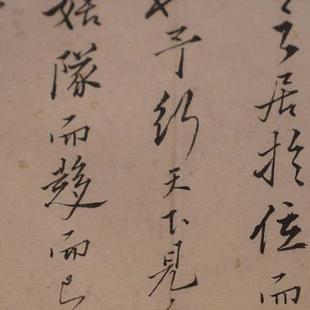 居於位而
予行天下見
隊而趍而已